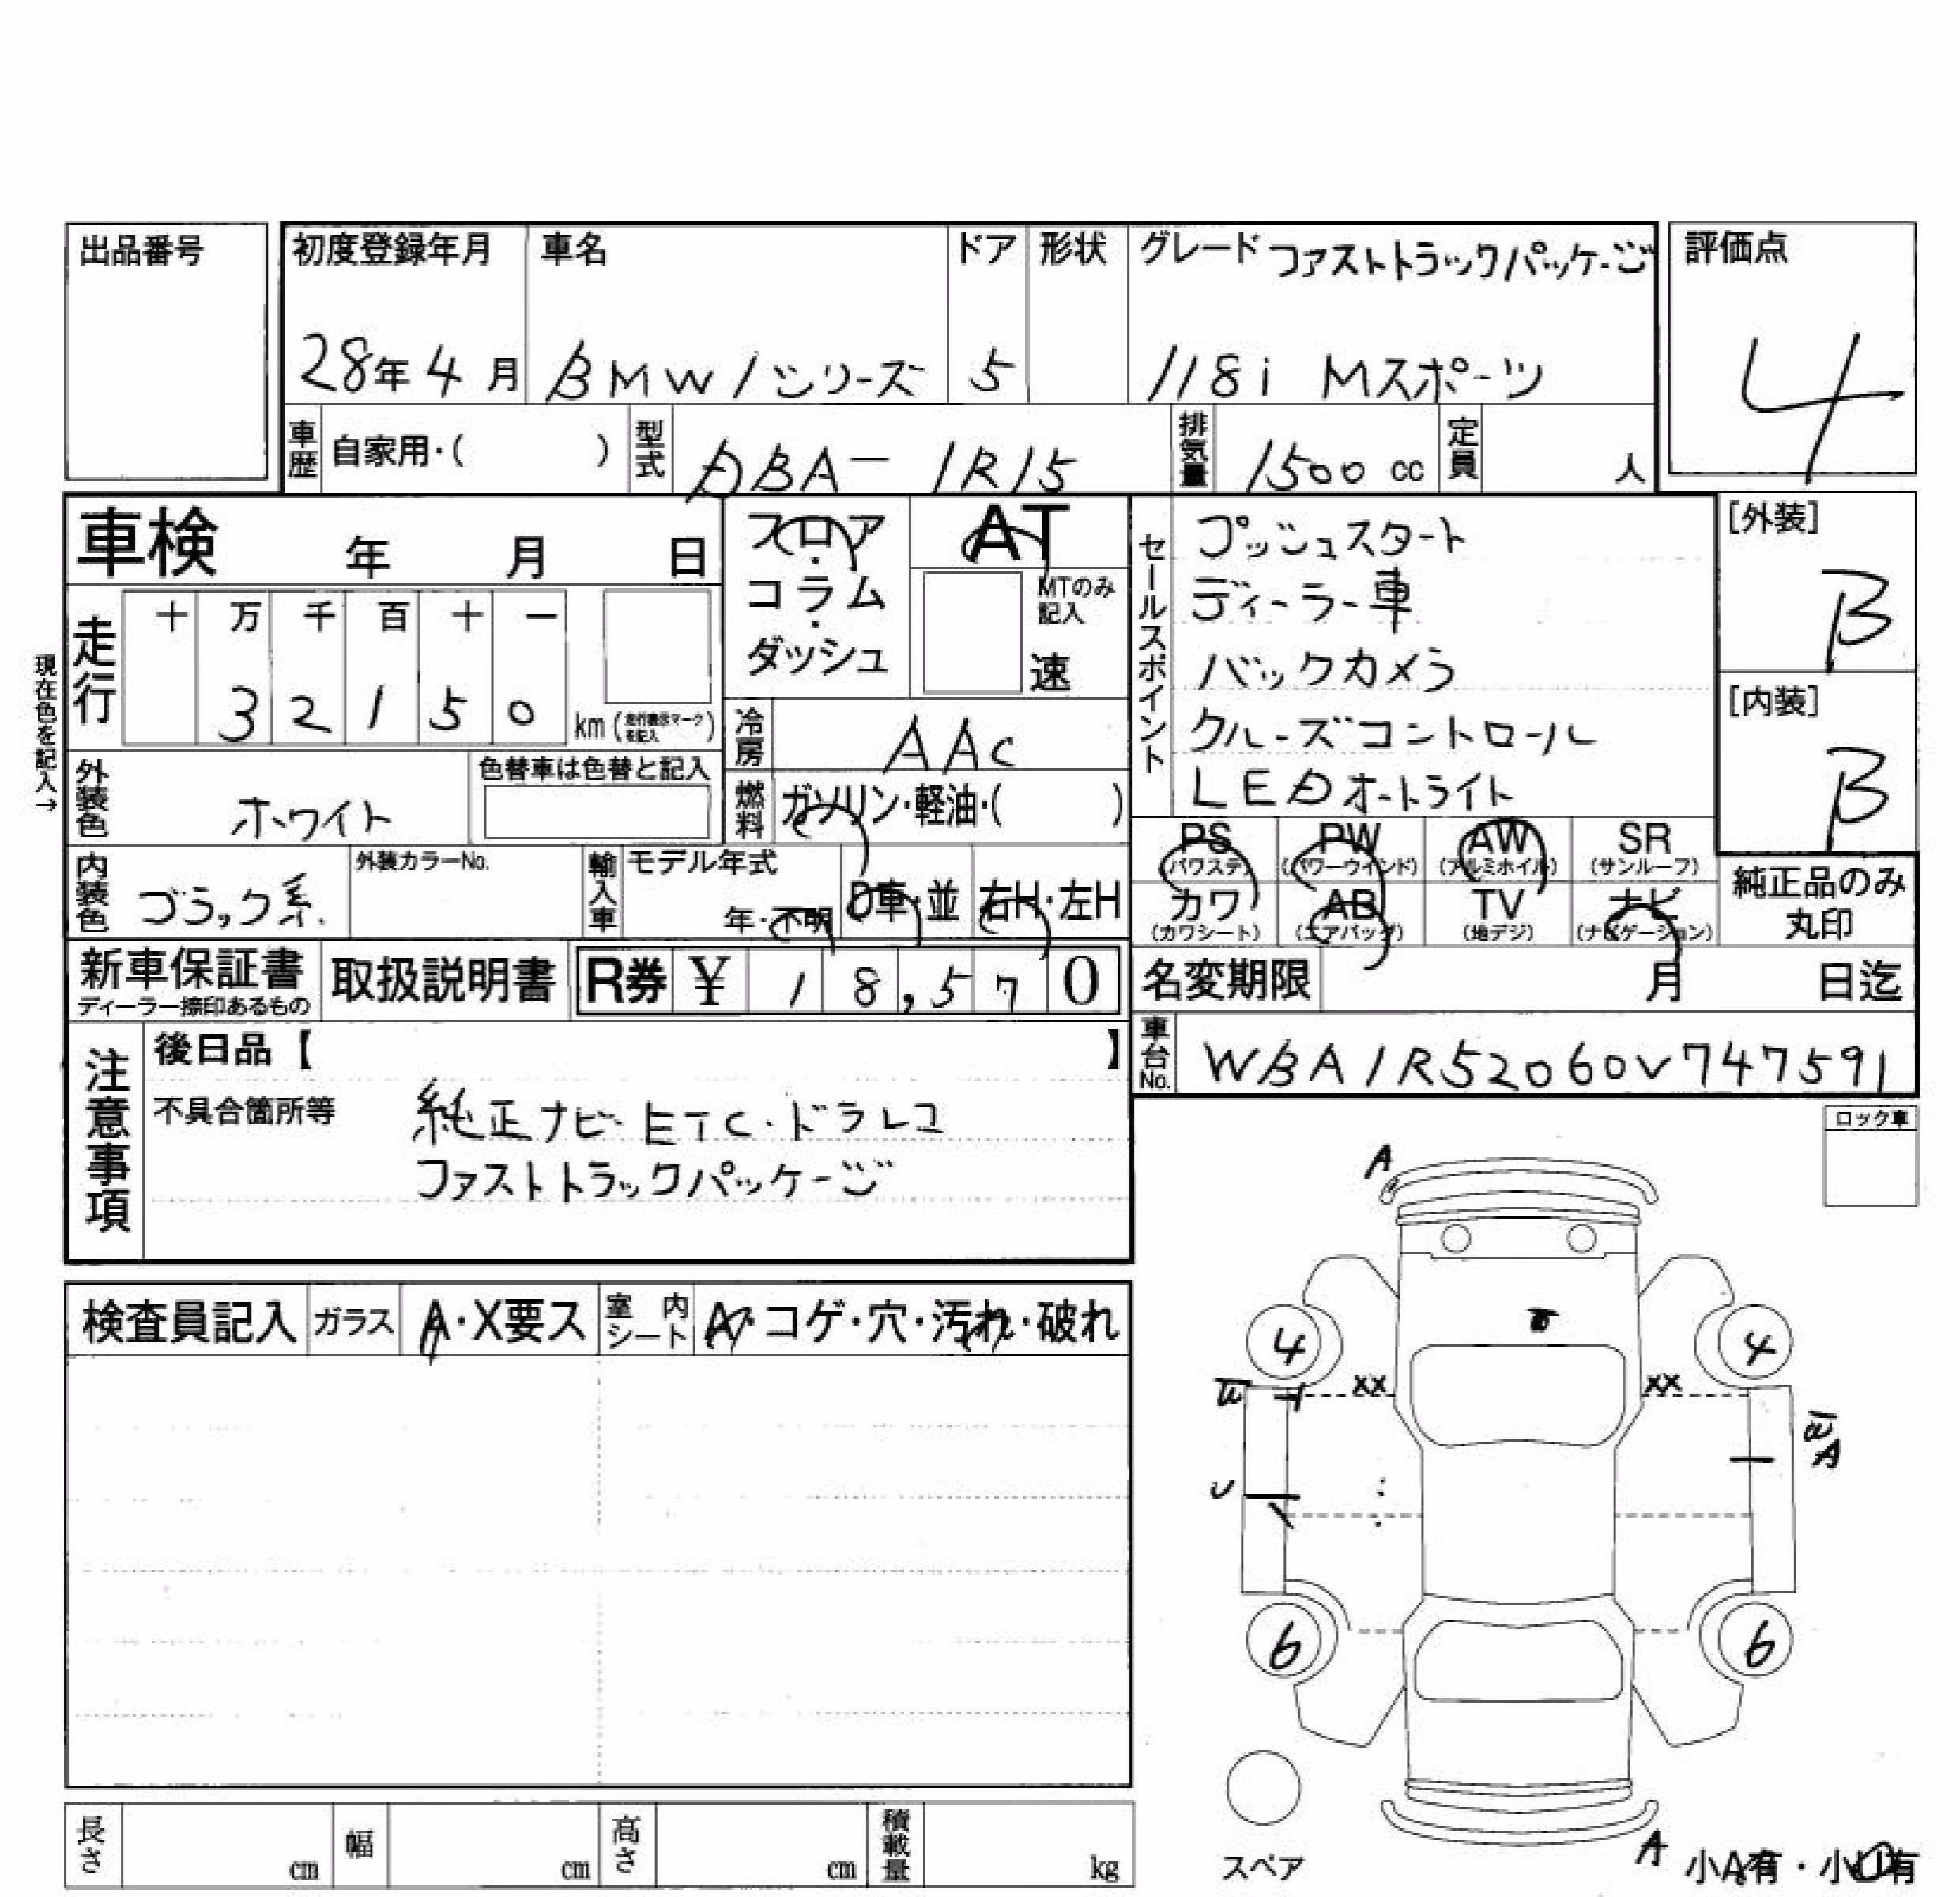 出品番号
初度登録年月 車名 ドア 形状 グレード ファストトラックパッケージ 評価点
28年4月 BMW1シリーズ 5 118i Mスポーツ 4
車歴 自家用・( ) 型式 DBA-1R15 排気量 1500cc 定員 人
車検 年 月 日
フロア・コラム・ダッシュ
AT
MTのみ記入
速
セールスポイント
プッシュスタート
ディーラー車
バックカメラ
クルーズコントロール
LEDオートライト
[外装]
B
[内装]
B
現在色を記入→
走行 十 万 千 百 十 一
3 2 1 5 0 km (走行表示マークを記入)
冷房 AAC
外装色 ホワイト 色替車は色替と記入
燃料 ガソリン・軽油・( )
PS (パワステ) PW (パワーウインド) AW (アルミホイル) SR (サンルーフ)
カワ (カワシート) AB (エアバッグ) TV (地デジ) ナビ (ナビゲーション)
純正品のみ丸印
内装色 ブラック系 外装カラーNo. 輸入車 モデル年式 年・不明 D車・並 右H・左H
新車保証書 ディーラー捺印あるもの 取扱説明書 R券 ¥ 18,570
名変期限 月 日迄
車台No. WBA1R52060V747591
注意事項
後日品【 】
不具合箇所等 純正ナビ・ETC・ドラレコ
ファストトラックパッケージ
ロック車
検査員記入 ガラス A・X要ス 室内シート A・コゲ・穴・汚れ・破れ
A
4 4
XX XX
A
6 6
スペア
A
小A有・小U有
長さ cm 幅 cm 高さ cm 積載量 kg